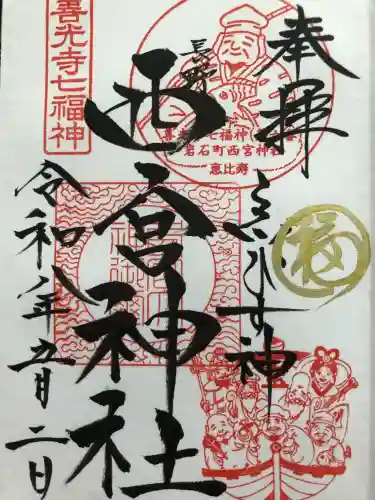 奉拝
ゑびす神
長野
西宮神社
令和八年五月二日
善光寺七福神
岩石町西宮神社
恵比寿
福